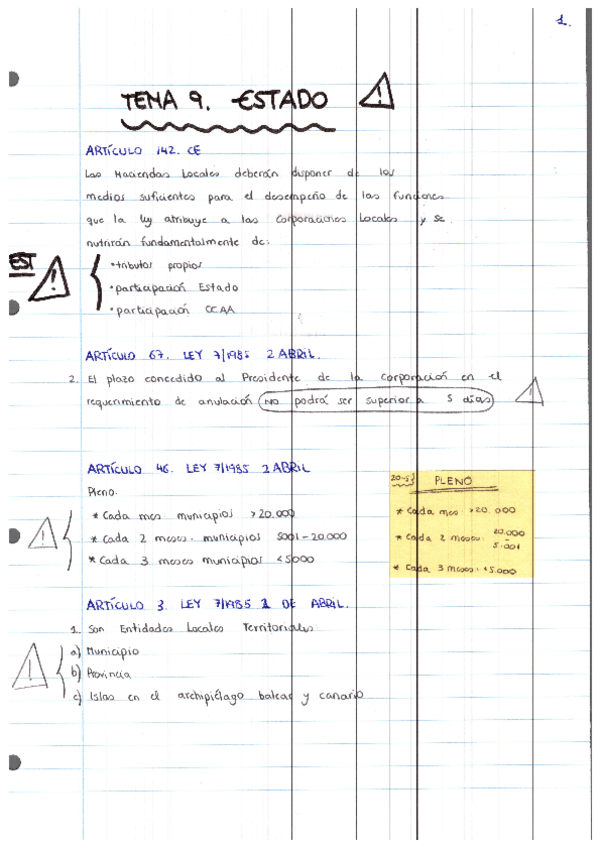 1.
TEMA 9. ESTADO
ARTÍCULO 142. CE
Las Haciendas Locales deberán disponer de los
medios suficientes para el desempeño de las funciones
que la ley atribuye a las Corporaciones Locales y se
nutrirán fundamentalmente de:
EST
• tributos propios
• participación Estado
• participación CCAA
ARTÍCULO 67. LEY 7/1985 2 ABRIL.
2. El plazo concedido al Presidente de la corporación en el
requerimiento de anulación NO podrá ser superior a 5 días
ARTÍCULO 46. LEY 7/1985 2 ABRIL
Pleno.
* Cada mes municipios >20.000
* Cada 2 meses. municipios 5001-20.000
* Cada 3 meses municipios <5000
20-5
PLENO
* Cada mes >20.000
* Cada 2 meses: 20.000
-
5.001
* Cada 3 meses: <5.000
ARTÍCULO 3. LEY 7/1985 2 DE ABRIL.
1. Son Entidades Locales Territoriales
a) Municipio
b) Provincia
c) Islas en el archipiélago balear y canario